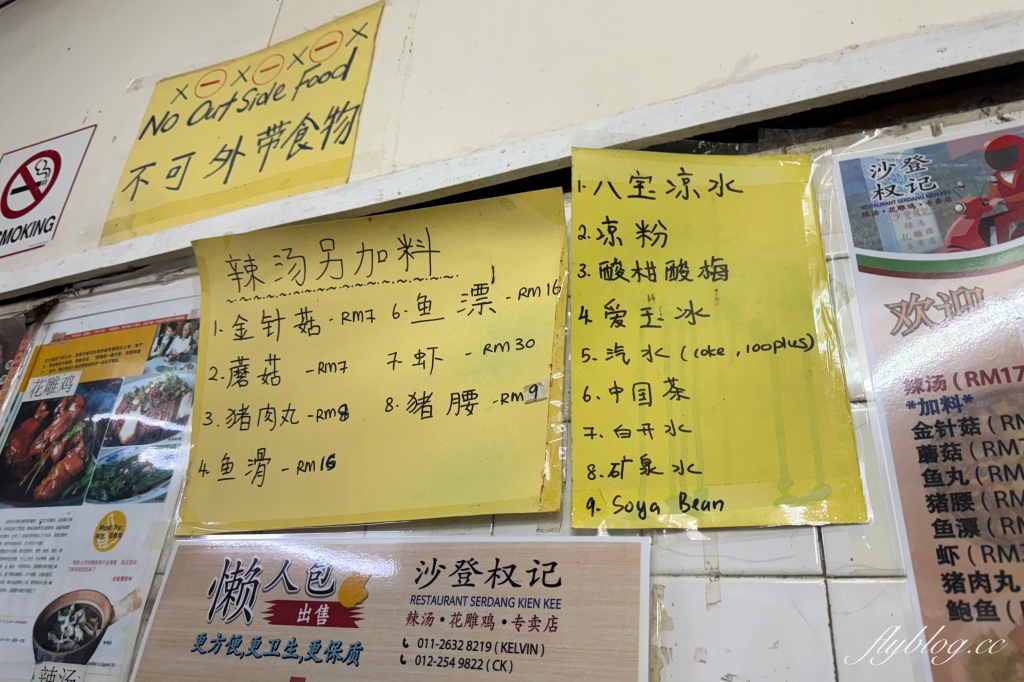 × ⊖ × ⊖ × ⊖ ×
No OutSide Food
不可外带食物
SMOKING
辣汤另加料
1. 金针菇 - RM7
2. 蘑菇 - RM7
3. 猪肉丸 - RM8
4. 鱼滑 - RM16
6. 鱼漂 - RM16
7. 虾 - RM30
8. 猪腰 - RM9
1. 八宝凉水
2. 凉粉
3. 酸柑酸梅
4. 爱玉冰
5. 汽水 (coke, 100plus)
6. 中国茶
7. 白开水
8. 矿泉水
9. Soya Bean
花雕鸡
辣汤
懒人包
出售
更方便,更卫生,更保质
沙登权记
RESTAURANT SERDANG KIEN KEE
辣汤·花雕鸡·专卖店
011-2632 8219 ( KELVIN )
012-254 9822 ( CK )
沙登
权记
RESTAURANT SERDANG KIEN KEE
辣汤·花雕鸡·专卖店
欢迎
辣汤 ( RM17
*加料*
金针菇 ( RM
蘑菇 ( RM7
鱼丸 ( RM
猪腰 ( RM
鱼漂 ( RM
虾 ( RM
猪肉丸
鲍鱼 (
flyblog.cc